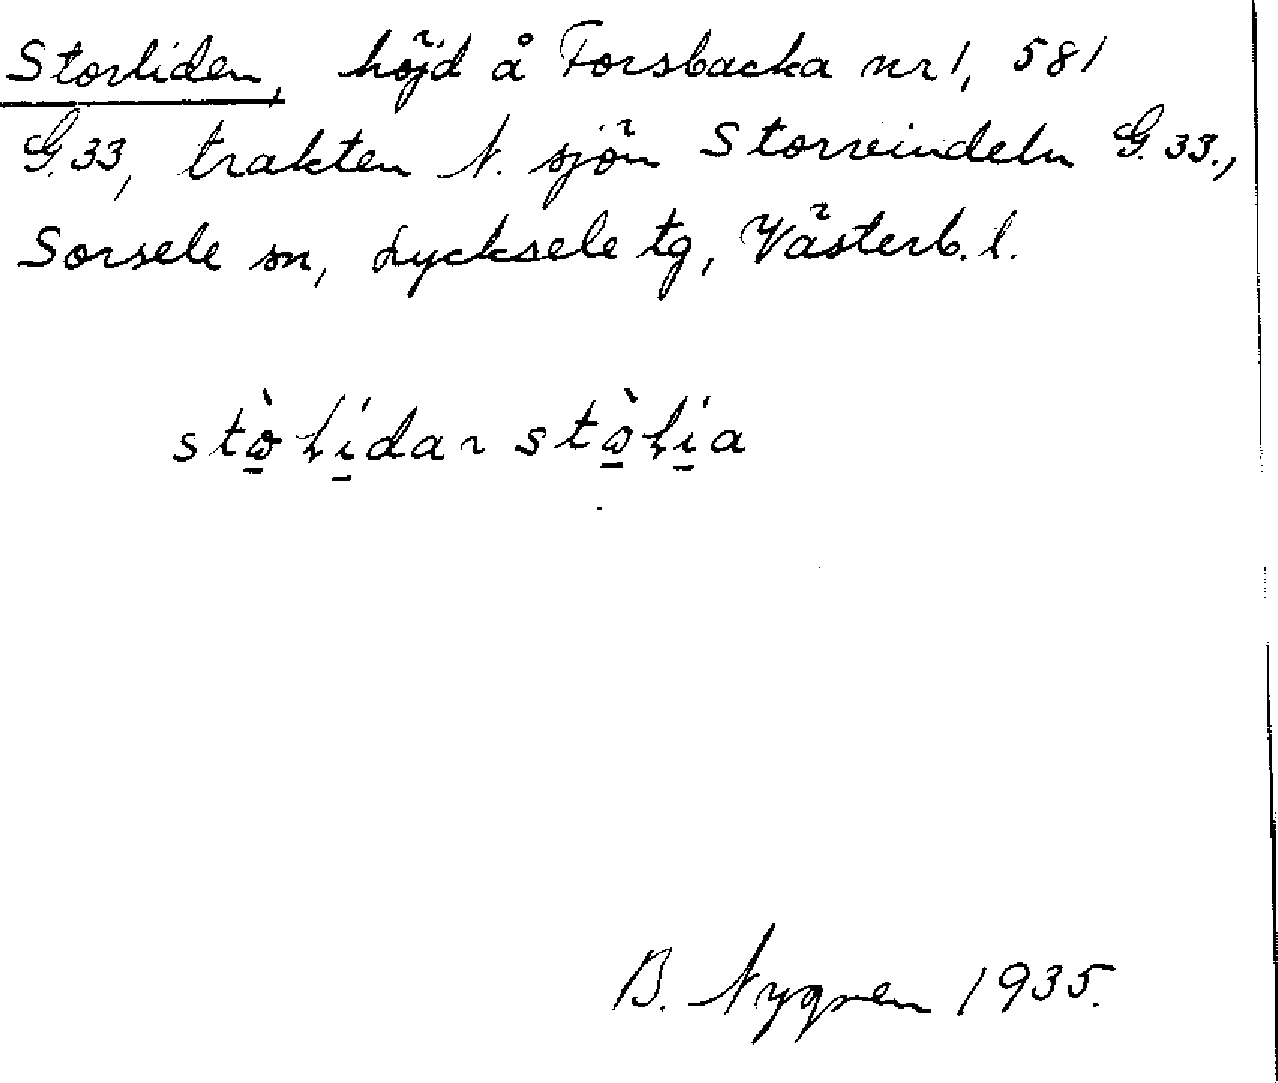 Storliden, höjd å Forsbacka nr 1, 581
G.33, trakten N. sjön Storvindeln G.33.,
Sorsele sn, Lycksele tg, Västerb. l.
B. Nygren 1935.